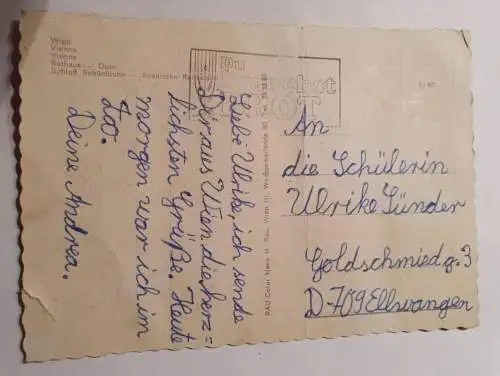 Wien
Vienna
Vienne
Rathaus — Oper
Schloß Schönbrunn — Spanische
Du
Liebe Ulrike, ich sende
Dir aus Wien die herz=
lichsten Grüße. Heute
morgen war ich im
Zoo.
Deine Andrea.
An
die Schülerin
Ulrike Sünder
Goldschmiedg. 3
D-709 Ellwangen